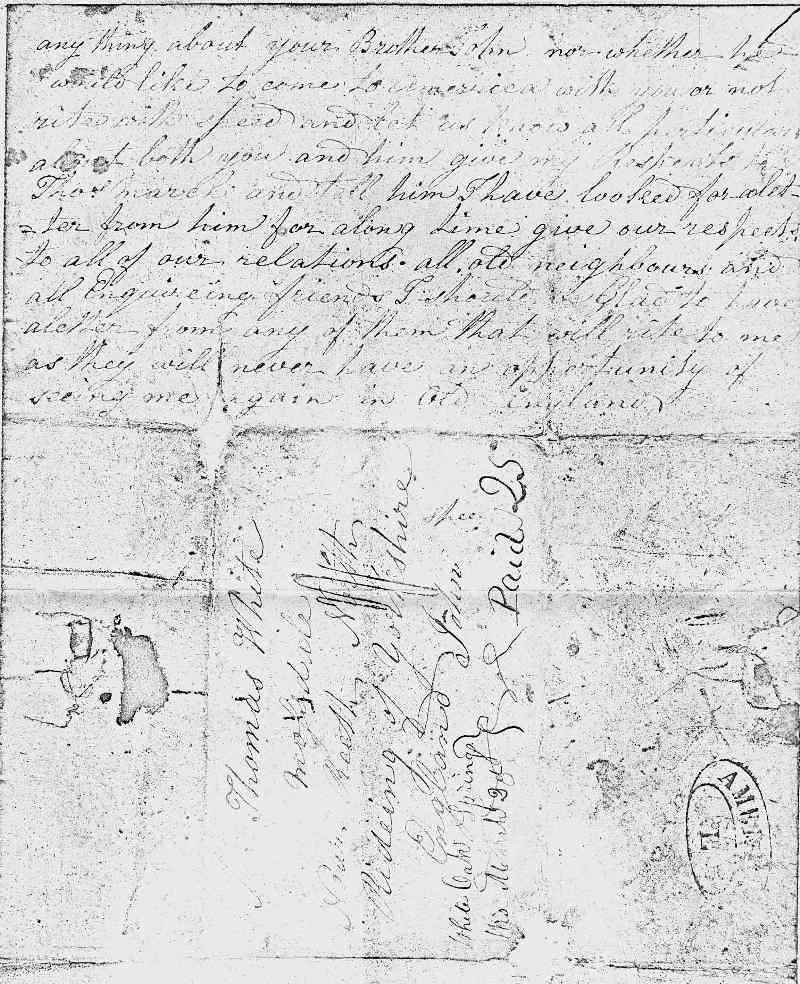 any thing about your Brother John nor whether he
would like to come to america with you or not
rite with speed and let us know all particulars
about both you and him give my Respects to
Thos and tell him I have looked for alet-
=ter from him for along time give our respects
to all of our relations all old neighbours and
all Enquireing friends I should be Glad to have
aletter from any of them that will rite to me
as they will never have an oppertunity of
seeing me again in Old England
Thomas White
Near North
Rideing of Yorkshire
England John
White Oak Springs
Paid 25